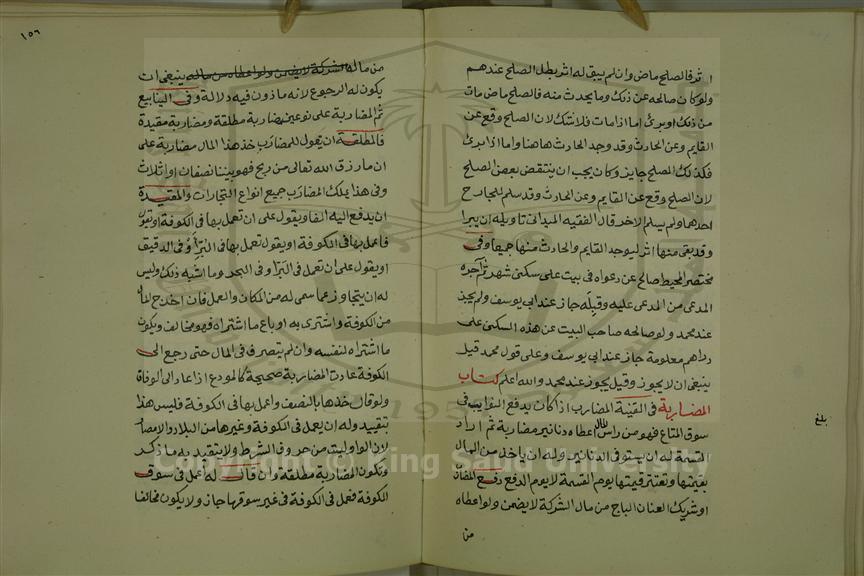 اثر فالصلح ماض وان لم يبق له اثر بطل الصلح عندهم
ولو كان صالحه عن ذلك وما يحدث منه فالصلح ماض مات
من ذلك او برئ اما اذا مات فلا شك لان الصلح وقع عن
القايم وعن الحادث وقد وجد الحادث هاهنا واما اذا برئ
فكذلك الصلح جايز وكان يجب ان ينتقض بعض الصلح
لان الصلح وقع عن القايم وعن الحادث وقد سلم للجارح
احدهما ولم يسلم الاخر قال الفقيه الميداني تاويله ان يبرا
وقد بقى منها اثر ليوجد القايم والحادث منها جميعا وفى
مختصر المحيط صالح عن دعواه فى بيت على سكنى شهر ثم آجره
المدعى من المدعى عليه وقبله جاز عند ابى يوسف ولم يجز
عند محمد ولو صالحه صاحب البيت عن هذه السكنى على
دراهم معلومة جاز عند ابى يوسف وعلى قول محمد قيل
ينبغى ان لا يجوز وقيل يجوز عند محمد والله اعلم كتاب
المضاربة فى القنية المضارب اذا كان يدفع النوايب فى
سوق المتاع فهو من راس المال اعطاه دنانير مضاربة ثم اراد
القسمة له ان يستوفى الدنانير وله ان ياخذ من المال
بقيمتها وتعتبر قيمتها يوم القسمة لا يوم الدفع دفع المضارب
او شريك العنان الباج من مال الشركة لا يضمن ولو اعطاه
من
بلغ
١٥٦
من ماله الشركة لا يضمن ولو اعطاه من ماله ينبغى ان
يكون له الرجوع لانه ماذون فيه دلالة وفى الينابيع
ثم المضاربة على نوعين مضاربة مطلقة ومضاربة مقيدة
فالمطلقة ان يقول للمضارب خذ هذا المال مضاربة على
ان ما رزق الله تعالى من ربح فهو بيننا نصفان او اثلاث
وفى هذا يملك المضارب جميع انواع التجارات والمقيدة
ان يدفع اليه الفا ويقول على ان تعمل بها فى الكوفة او تقول
فاعمل بها فى الكوفة او يقول تعمل بها فى البز او فى الدقيق
او يقول على ان تعمل فى البر او فى البحر وما اشبه ذلك وليس
له ان يتجاوز عما سمى له من المكان والعمل فان اخرج المال
من الكوفة واشترى به او باع ما اشتراه فهو مخالف ويكون
ما اشتراه لنفسه وان لم يتصرف فى المال حتى رجع الى
الكوفة عادت المضاربة صحيحة كالمودع اذا عاد الى الوفاق
ولو قال خذها بالنصف واعمل بها فى الكوفة فليس هذا
بتقييد وله ان يعمل فى الكوفة وغيرها من البلاد والامصار
لان الواو ليست من حروف الشرط ولا يتقيد به ما ذكر
وتكون المضاربة مطلقة وان قال له اعمل فى سوق
الكوفة فعمل فى الكوفة فى غير سوقها جاز ولا يكون مخالفا
Copyright © King Saud University
1957